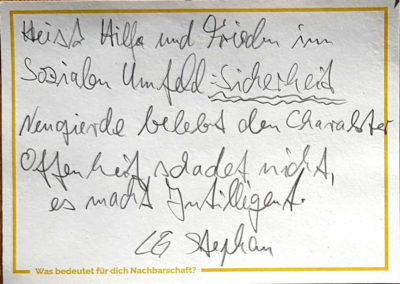 Heist Hilfe und Frieden im
Sozialen Umfeld: Sicherheit
Neugierde belebt den Charakter
Offenheit, schadet nicht,
es macht Intilligent.
LG Stephan
Was bedeutet für dich Nachbarschaft?